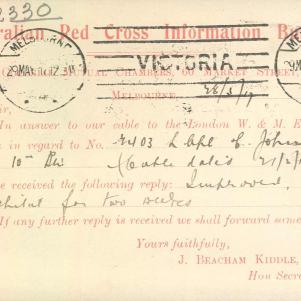 2330
ralian Red Cross Information B
MELBOURNE
29 MAY 12.
VICTORIA
MUTUAL CHAMBERS, 60 MARKET STREE
MELBOURNE,
ir,
In answer to our cable to the London W. & M. E
in regard to No. 2403 L Cpl E. Johns
10th Bn (Cable date 21/2/
e received the following reply: Improved,
pital for two weeks
If any further reply is received we shall forward same
Yours faithfully,
J. BEACHAM KIDDLE,
Hon Secre